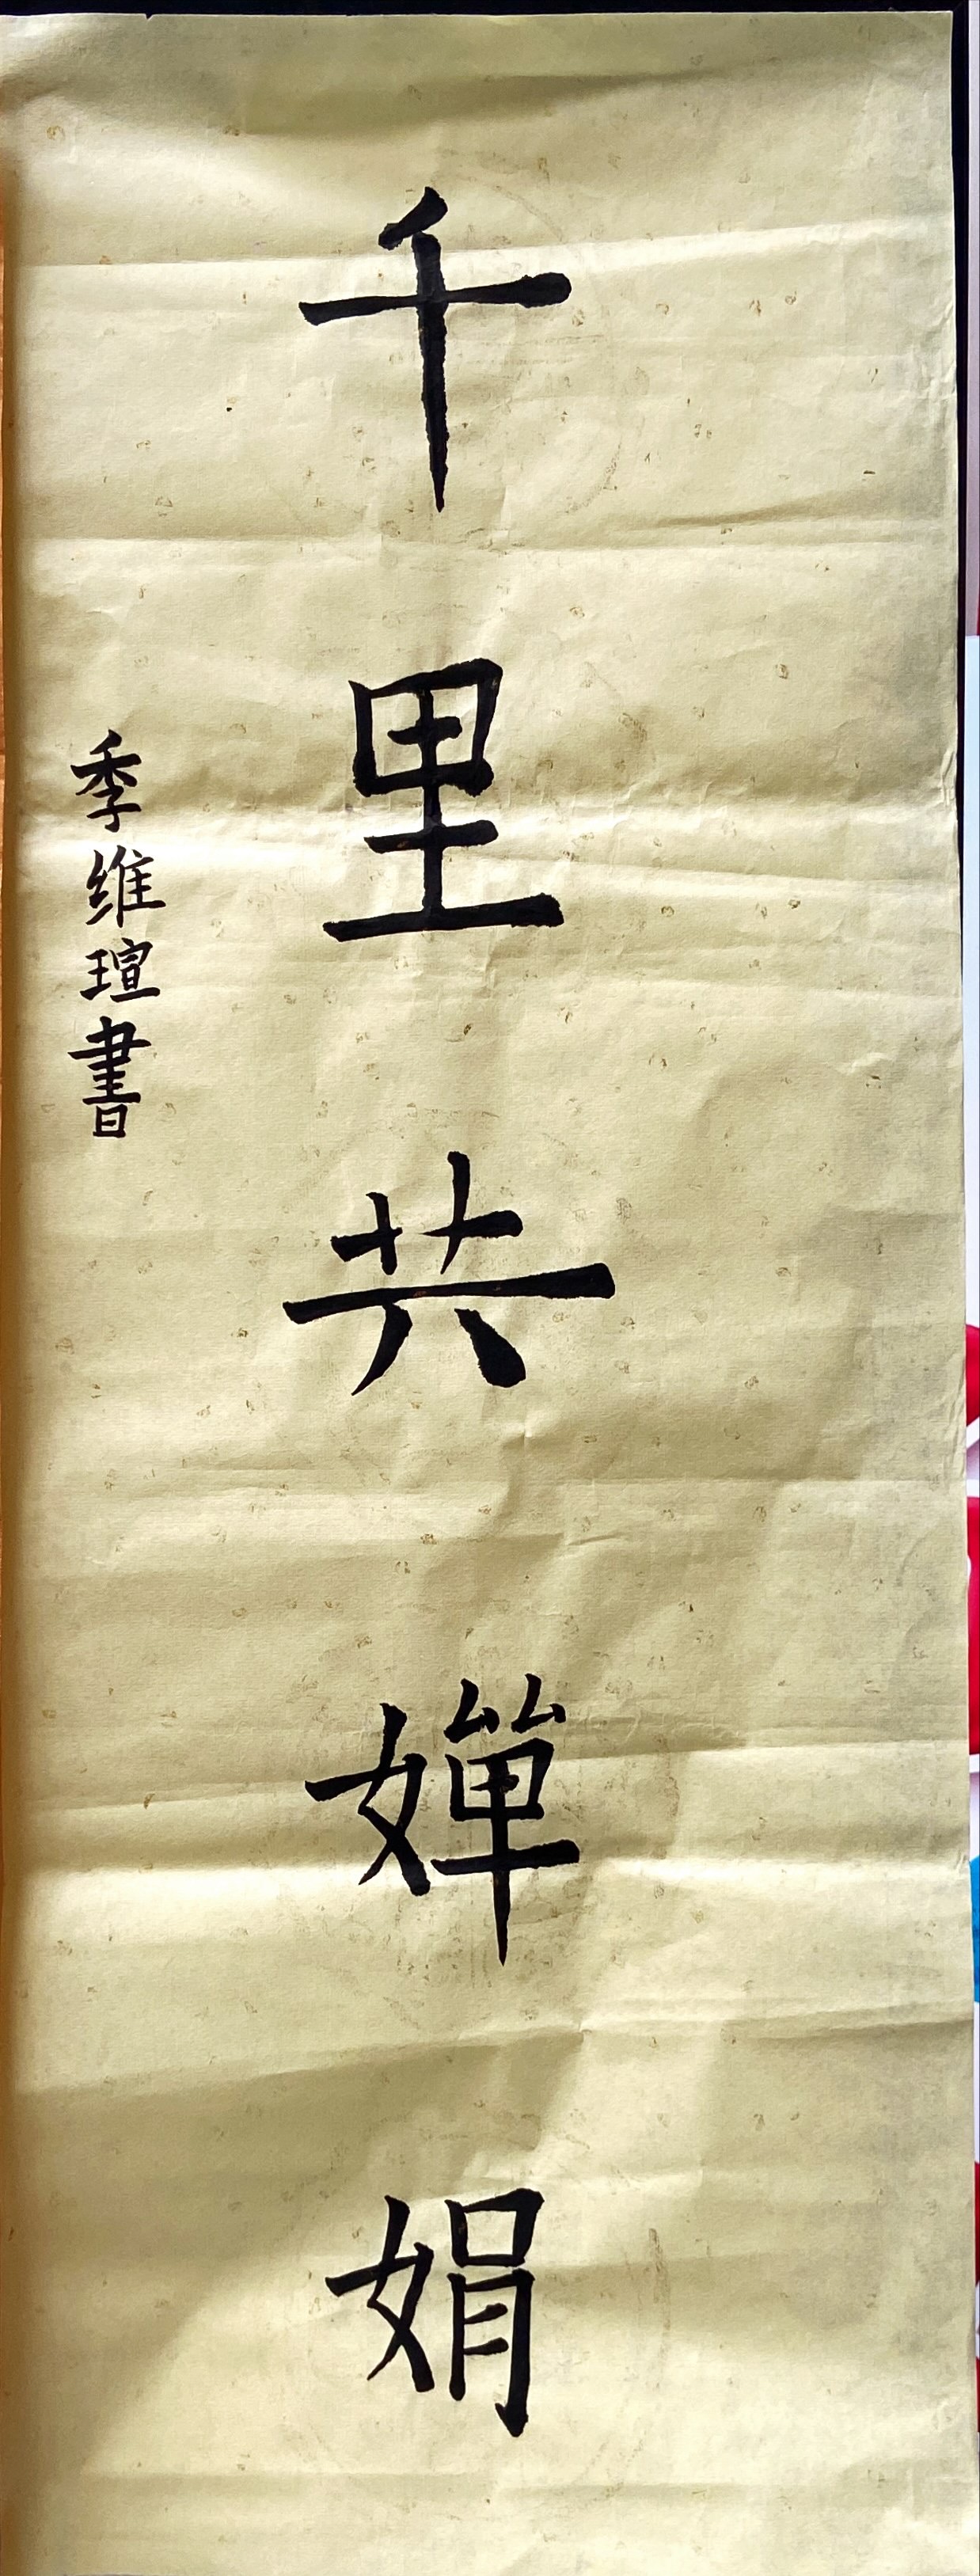 千里共嬋娟
季维瑄書